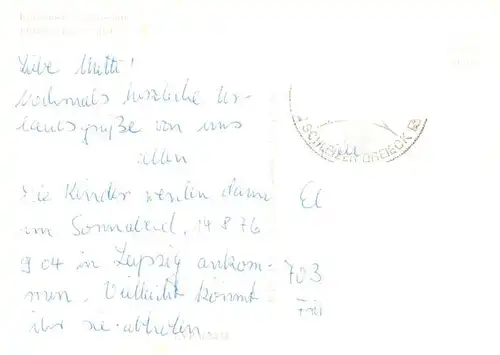 Liebe Mutti!
Nochmals herzliche Ur-
laubsgrüße von uns
allen
Die Kinder werden dann
am Sonnabend, 14 8 76
9 04 in Leipzig ankom-
men. Vielleicht könnt
ihr sie abholen.
SCHLEIZER DREIECK
El
703